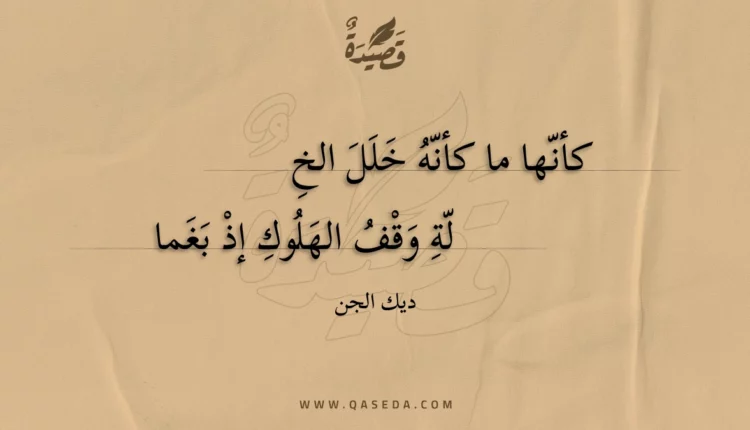 قَصِيْدَةٌ
كأنّها ما كأنّهُ خَلَلَ الخِ
لّةِ وَقْفُ الهَلُوكِ إذْ بَغَما
ديك الجن
WWW.QASEDA.COM